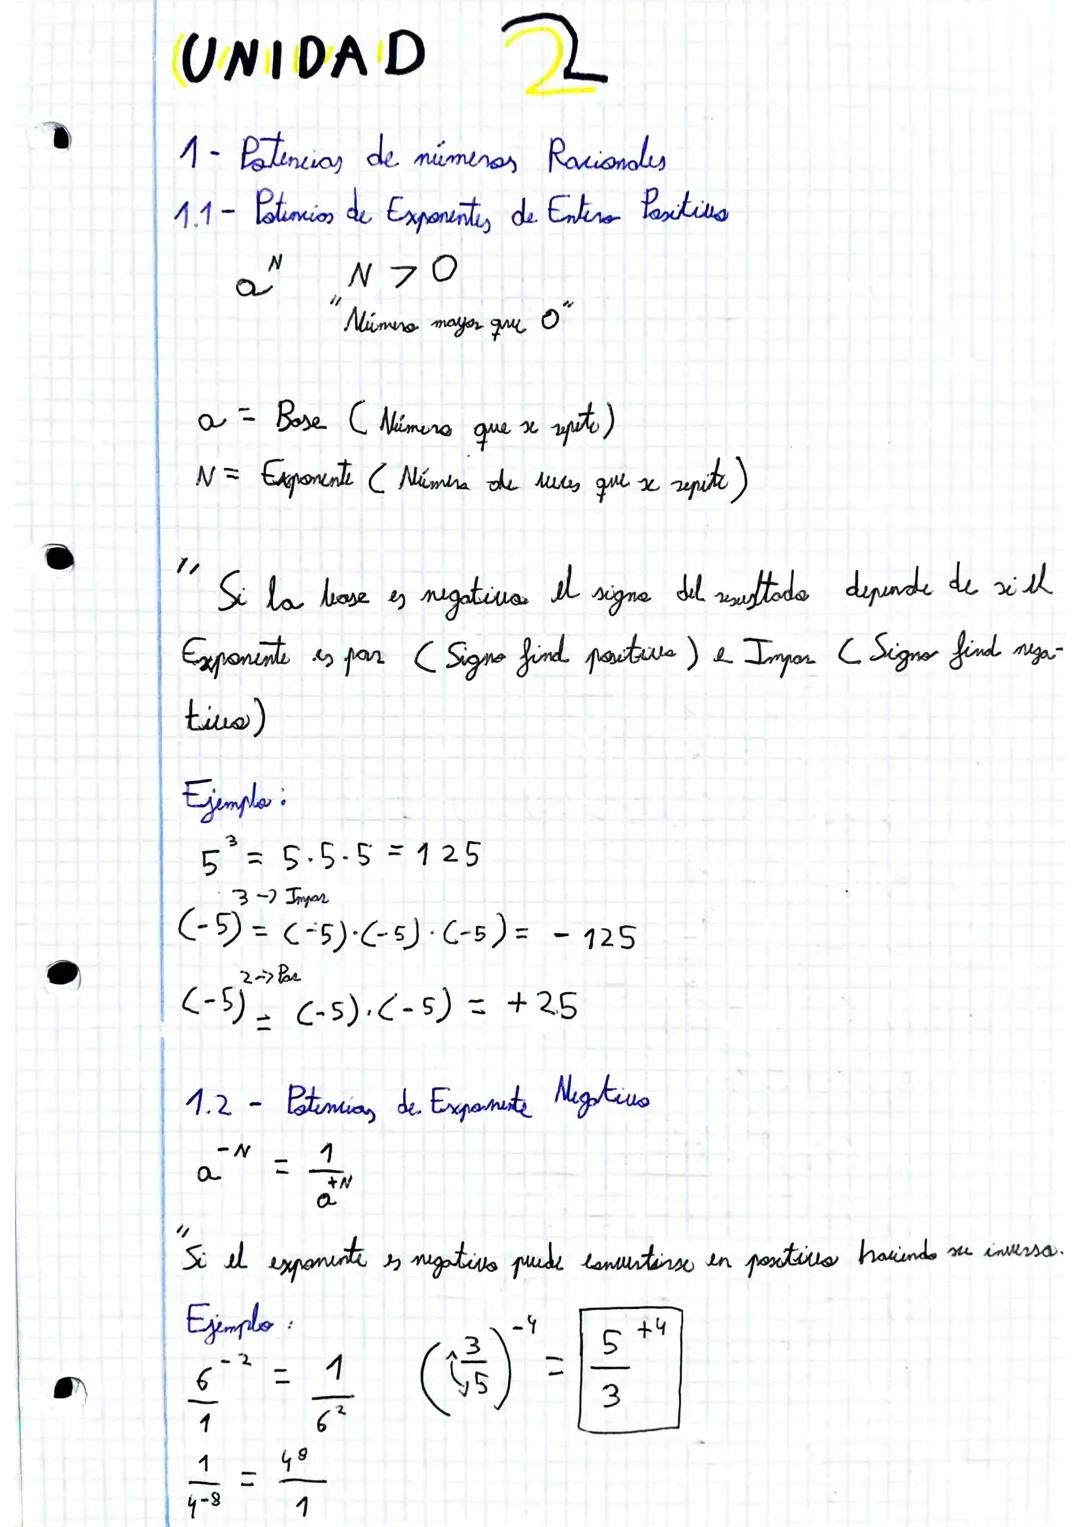 UNIDAD 2
1 - Potencias de números Racionales
1.1 - Potencias de Exponentes de Entero Positivo
a^N N > 0
"Número mayor que 0"
a = Base (Número que se repite)
N = Exponente (Número de veces que se repite)
" Si la base es negativa el signo del resultado depende de si el
Exponente es par (Signo final positivo) e Impar (Signo final nega-
tivo)
Ejemplo:
5^3 = 5·5·5 = 125
(-5)^3 → Impar = (-5)·(-5)·(-5) = - 125
(-5)^2 → Par = (-5)·(-5) = +25
1.2 - Potencias de Exponente Negativo
a^-N = 1/a^+N
"Si el exponente es negativo puede convertirse en positivo haciendo su inversa.
Ejemplo:
6^-2/1 = 1/6^2 (3/5)^-4 = 5/3^+4
1/4^-8 = 4^8/1